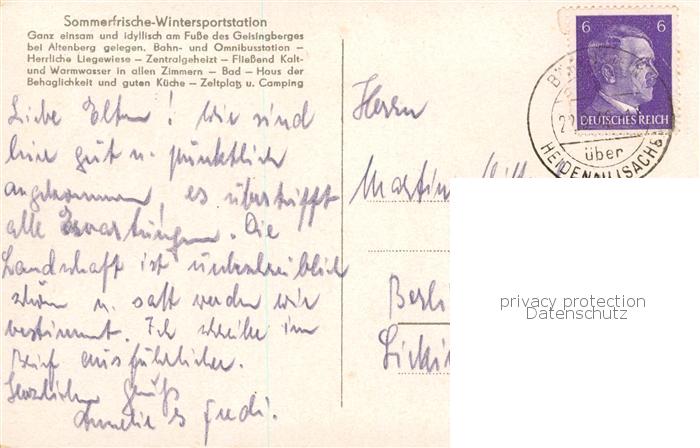 Sommerfrische-Wintersportstation
Ganz einsam und idyllisch am Fuße des Geisingberges
bei Altenberg gelegen. Bahn- und Omnibusstation –
Herrliche Liegewiese – Zentralgeheizt – Fließend Kalt-
und Warmwasser in allen Zimmern – Bad – Haus der
Behaglichkeit und guten Küche – Zeltplatz u. Camping
Liebe Eltern! Wir sind
hier gut u. pünktlich
angekommen, es übertrifft
alle Erwartungen. Die
Landschaft ist unbeschreiblich
schön u. satt werden wir
bestimmt. Ich schreibe im
Brief ausführlicher.
Herzlichen Gruß
Herrn
Martin
Berli
6 6
DEUTSCHES REICH
über
HEIDENAU (SACHS
privacy protection
Datenschutz